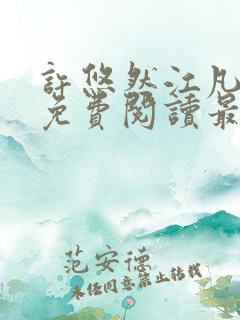 許悠然江凡
免費閱讀最
范安德
未经同意禁止转载